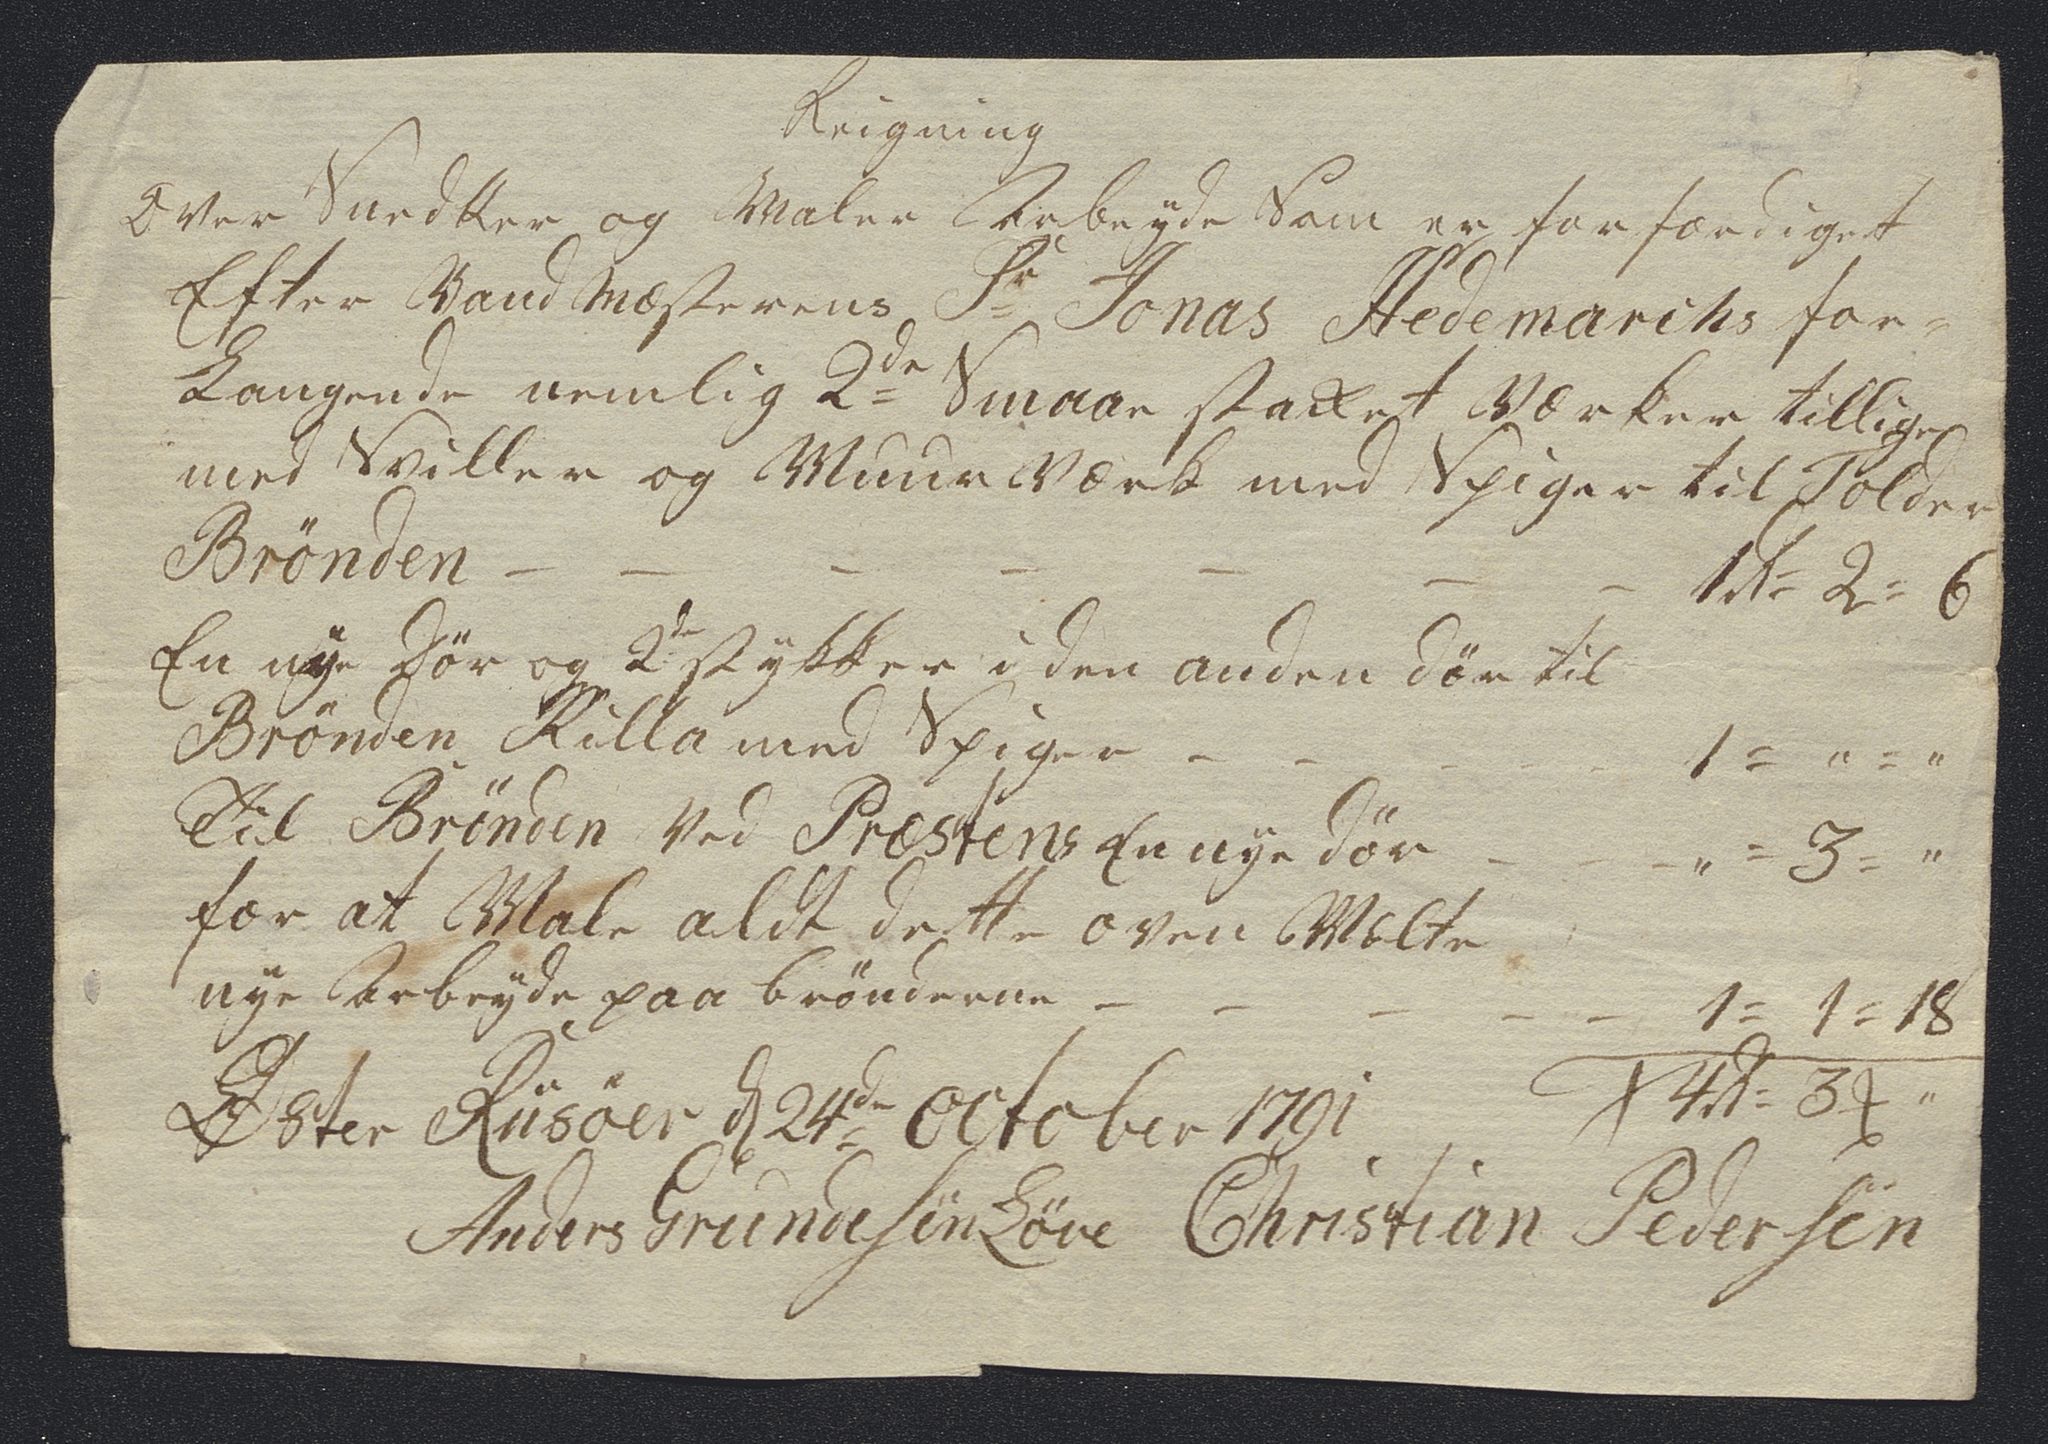 Reigning
Over Snedker og Maler Arbeyde Som er forfærdiget
Efter Vandmæsterens Sr Jonas Hedemarchs for=
Langende nemlig 2de Smaae staket Værker tillige
med Sviller og Muur Værk med Spiger til Tolder
Brönden — — — — — — — 1rd= 2= 6
En nye Dör og 2de stykker i den anden dör til
Brönden Killa med Spiger - - - - - 1 = " = "
Til Brönden ved Præstens En nye dör - - - " = 3 = "
for at Male aldt dette oven Melte
nye Arbeyde paa brönderne — — — — — 1 = 1 = 18
4rd= 3 "
Öster Riisöer d 24de October 1791
Anders Grundesön Löve Christian Pedersen